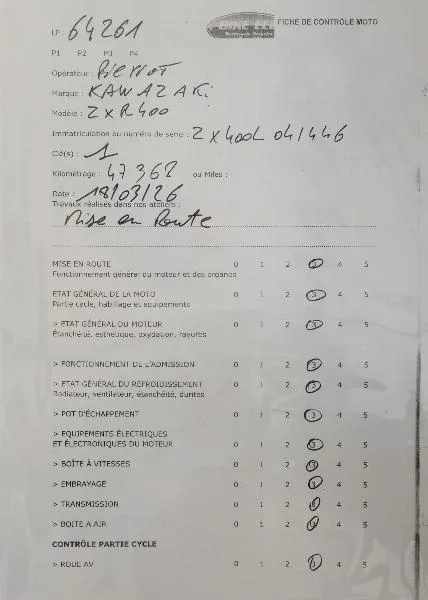 FICHE DE CONTRÔLE MOTO
LP : 64261
P1 P2 P3 P4
Opérateur : Pierrot
Marque : KAWAZAKi
Modèle : ZxR400
Immatriculation ou numéro de serie : Zx400L 041446
Clé(s) : 1
Kilométrage : 47362 ou Miles :
Date : 18/03/26
Travaux réalisés dans nos ateliers :
Mise en Route
MISE EN ROUTE 0 1 2 3 4 5
Fonctionnement général du moteur et des organes
ETAT GÉNÉRAL DE LA MOTO 0 1 2 3 4 5
Partie cycle, habillage et equipements
> ETAT GÉNÉRAL DU MOTEUR 0 1 2 3 4 5
Étanchéité, esthétique, oxydation, rayures
> FONCTIONNEMENT DE L'ADMISSION 0 1 2 3 4 5
> ETAT GÉNÉRAL DU REFROIDISSEMENT 0 1 2 3 4 5
Radiateur, ventilateur, étanchéité, durites
> POT D'ÉCHAPPEMENT 0 1 2 3 4 5
> EQUIPEMENTS ÉLECTRIQUES
ET ÉLECTRONIQUES DU MOTEUR 0 1 2 3 4 5
> BOÎTE À VITESSES 0 1 2 3 4 5
> EMBRAYAGE 0 1 2 3 4 5
> TRANSMISSION 0 1 2 3 4 5
> BOITE A AIR 0 1 2 3 4 5
CONTRÔLE PARTIE CYCLE
> ROUE AV 0 1 2 3 4 5